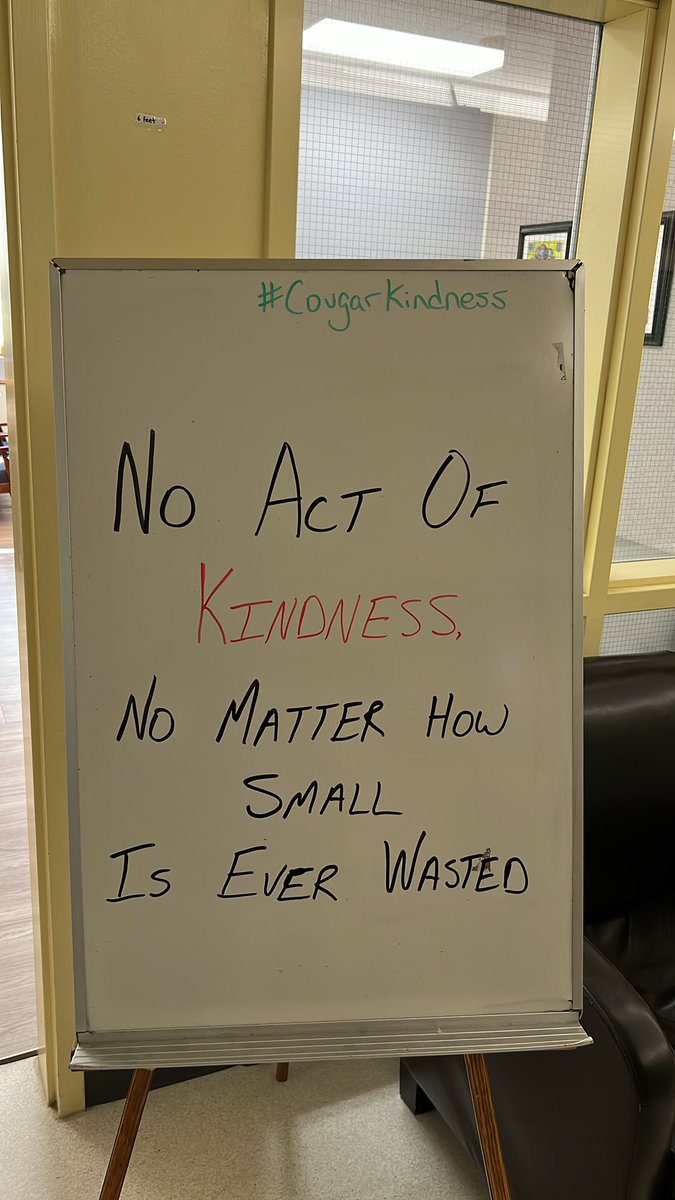 6 feet
#CougarKindness
No Act Of
Kindness,
No Matter How
Small
Is Ever Wasted